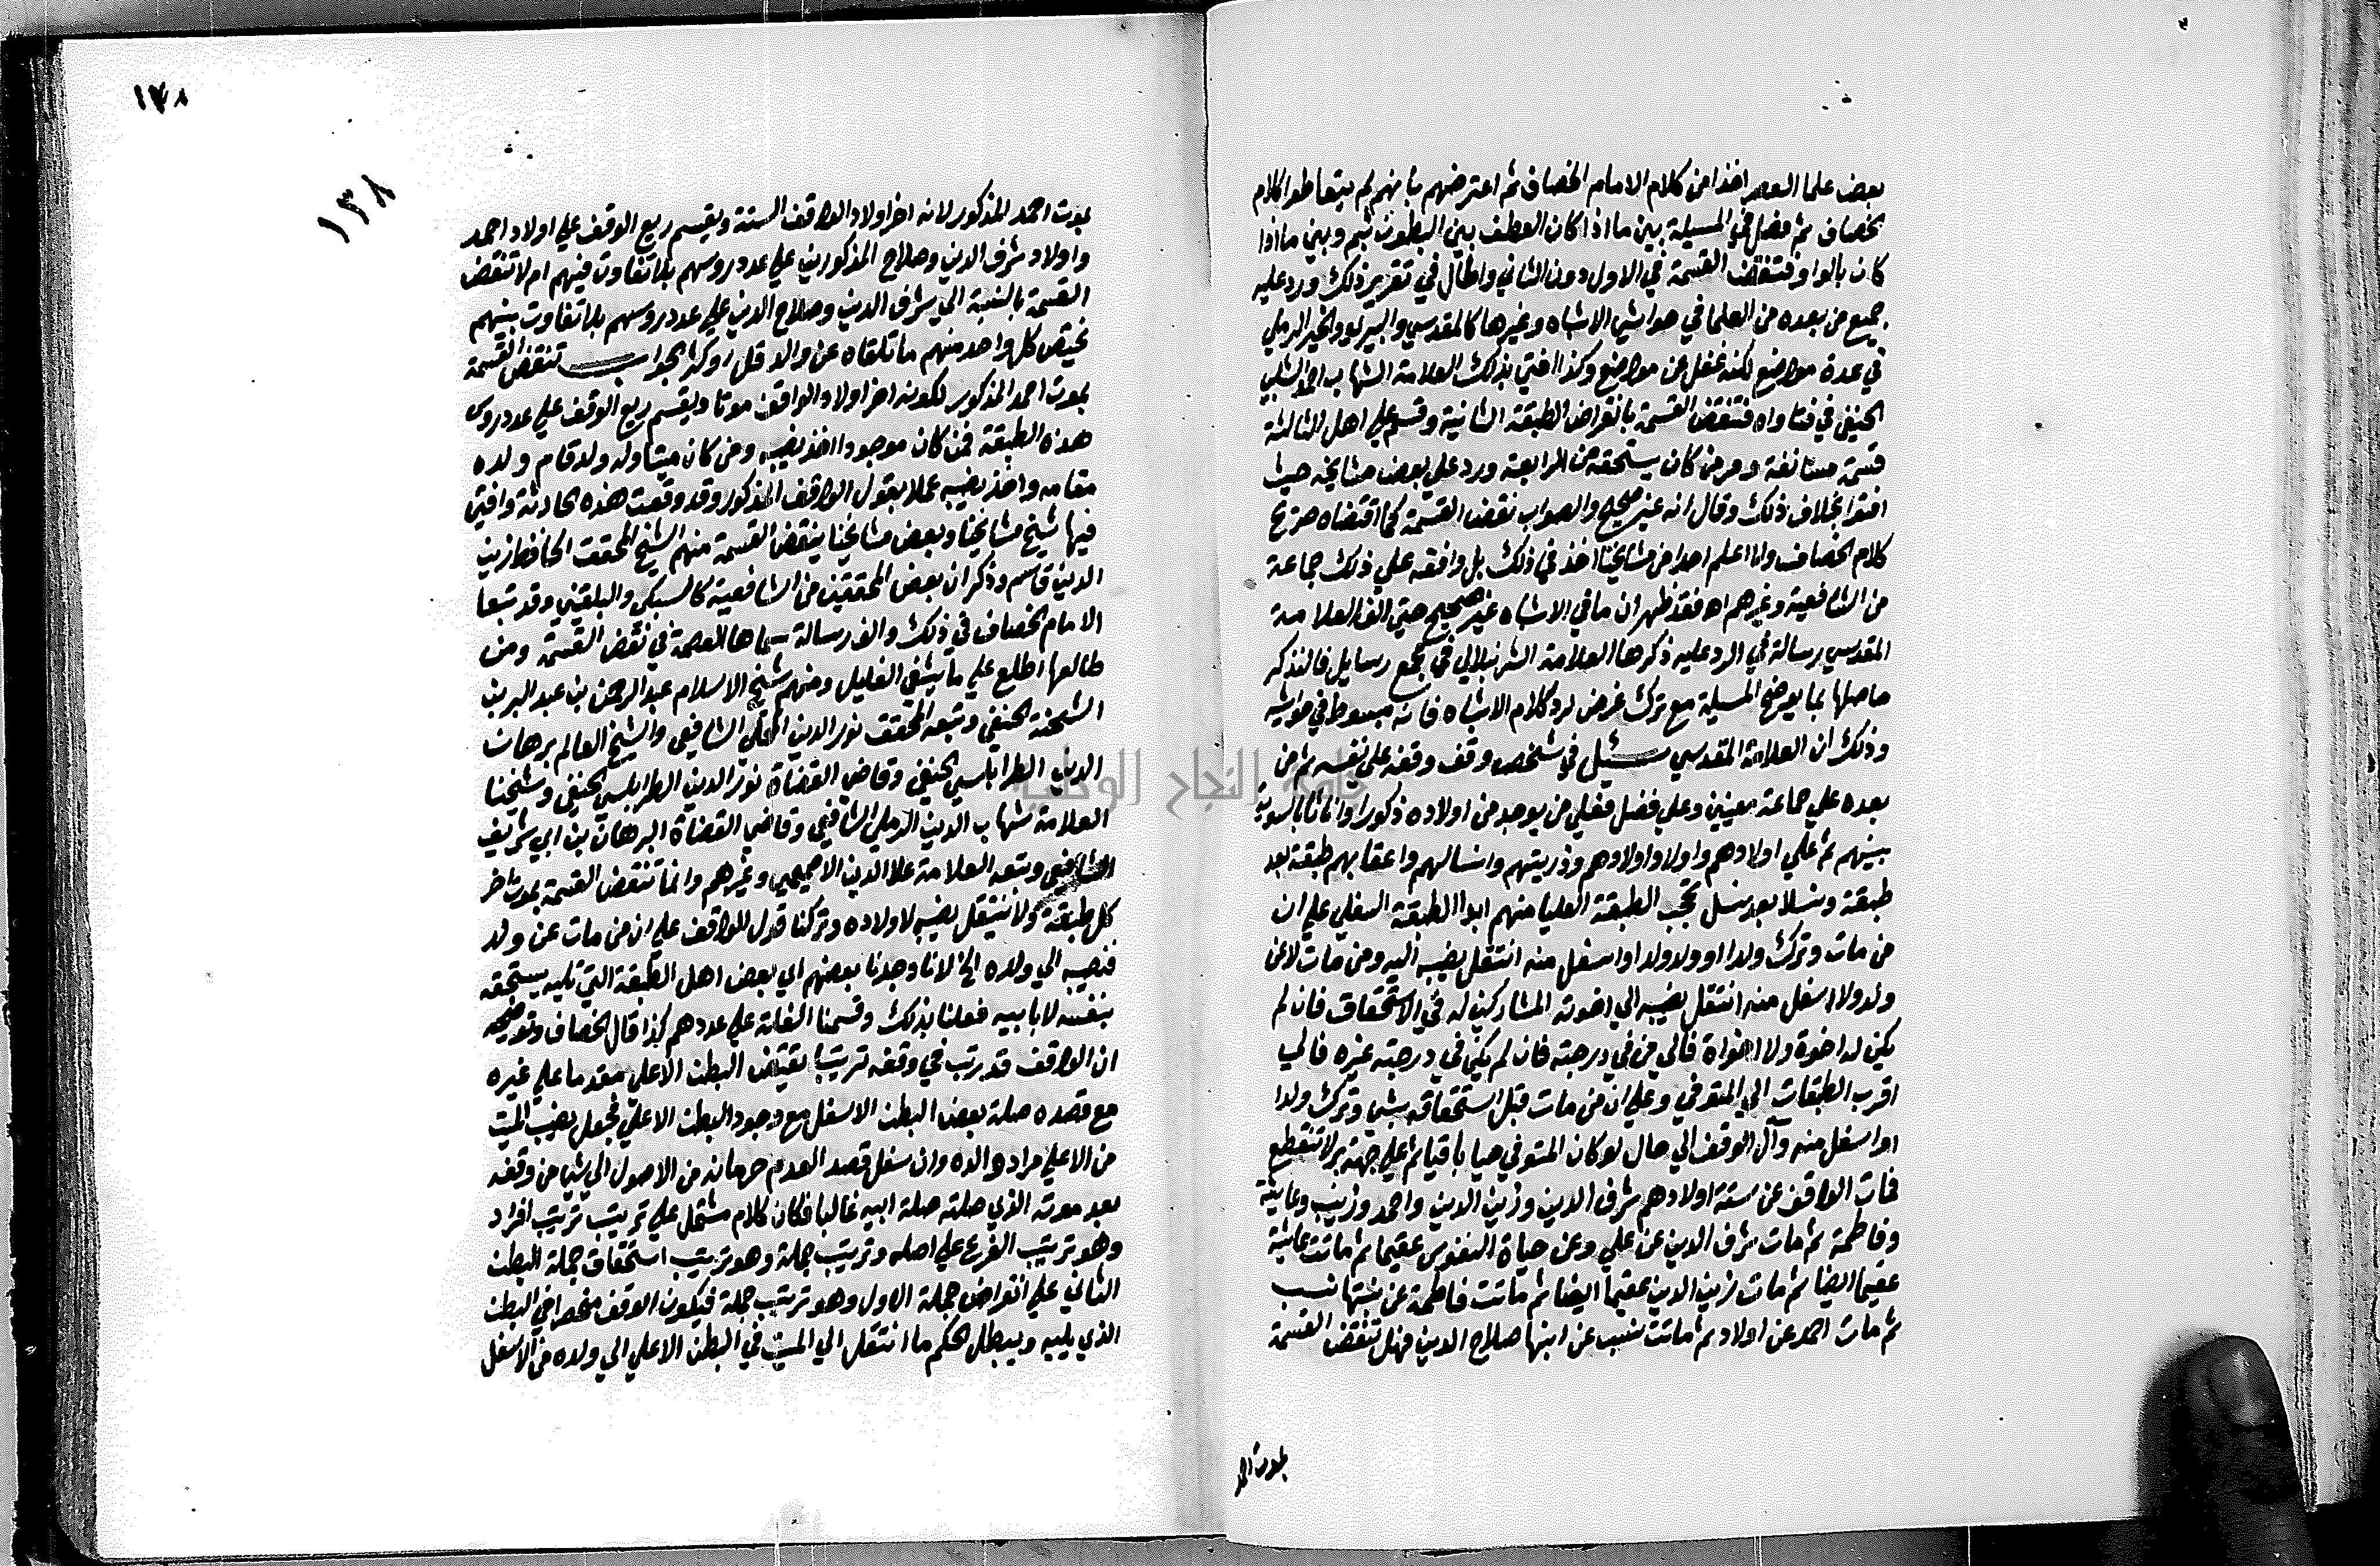 بعض علما العصر اخذا من كلام الامام الخصاف ثم اعترضهم بانهم لم يتعاطوا كلام
الخصاف ثم فصل هو المسيلة بين ما اذا كان العطف بين البطون بثم وبين ما اذا
كان بالواو فتنقض القسمة في الاول دون الثاني واطال في تقرير ذلك ورد عليه
جميع من بعده من العلما في حواشي الاشباه وغيرها كالمقدسي والبيري والخير الرملي
في عدة مواضع لكنه غفل عن مواضع وكذا افتي بذلك العلامة الشهاب احمد الشلبي
الحنفي في فتاواه فتنقض القسمة بانقراض الطبقة الثانية وقسم علي اهل الثالثة
قسمة مستانفة ومن كان يستحقه من الرابعة ورد علي بعض مشايخه حيث
افتوا بخلاف ذلك وقال انه غير صحيح والصواب نقض القسمة كما اقتضاه صريح
كلام الخصاف وانا اعلم احدا من مشايخنا اخذ في ذلك بل وافقه علي ذلك جماعة
من الشافعية وغيرهم اه فقد ظهر ان ما في الاشباه غير صحيح حتي الف العلامة
المقدسي رسالة في الرد عليه ذكرها العلامة الشرنبلالي في مجمع رسايل فالنذكر
حاصلها بما يوضح المسيلة مع ترك غرض لرد كلام الاشباه فانه مبسوط في حواشيه
وذلك ان العلامة المقدسي سئيل في شخص وقف وقفه علي نفسه ثم من
بعده علي جماعة معينين وعلي فضل فعلي من يوجد من اولاده ذكورا واناثا بالسوية
بينهم ثم علي اولادهم واولاد اولادهم وذريتهم وانسالهم واعقابهم طبقة بعد
طبقة ونسلا بعد نسل تحجب الطبقة العليا منهم ابدا الطبقة السفلي علي ان
من مات وترك ولدا او ولد ولد او اسفل منه انتقل نصيبه اليه ومن مات لا عن
ولد ولا اسفل منه انتقل نصيبه الي اخوته المشاركين له في الاستحقاق فان لم
يكن له اخوة ولا اخواة فالي من في درجته فان لم يكن في درجته غيره فالي
اقرب الطبقات الي المتوفي وعلي ان من مات قبل استحقاقه بشي وترك ولدا
او اسفل منه وآل الوقف الي حال لو كان المتوفي حيا باقيا ثم علي جهة بر لا تنقطع
فمات الواقف عن ستة اولاد هم شرف الدين وزين الدين واحمد وزينب وعايشة
وفاطمة ثم مات شرف الدين عن علي وعن حياة النفوس عقيما ثم ماتت عايشة
عقيما ايضا ثم مات زين الدين عقيما ايضا ثم ماتت فاطمة عن بنتها نسب
ثم مات احمد عن اولاد ثم ماتت نسب عن ابنها صلاح الدين فهل تنقض القسمة
بموت احمد
١٣٨
١٣٨
بموت احمد المذكور لانه اخر اولاد الواقف الستة ويقسم ريع الوقف علي اولاد احمد
واولاد شرف الدين وصلاح المذكورين علي عدد روسهم بلا تفاوت فيهم ام لا تنقض
القسمة بالنسبة الي شرف الدين وصلاح الدين علي عدد روسهم بلا تفاوت بينهم
فيختص كل واحد منهم ما تلقاه عن والد قل او كثر الجواب تنقض القسمة
بموت احمد المذكور لكونه اخر اولاد الواقف موتا ويقسم ريع الوقف علي عدد روس
هذه الطبقة فمن كان موجودا اخذ نصيبه ومن كان ميتا وله ولد قام ولده
مقامه واخذ نصيبه عملا بقول الواقف المذكور وقد وقعت هذه الحادثة وافتي
فيها شيخ مشايخنا وبعض مشايخنا بنقض القسمة منهم الشيخ المحقق الحافظ زين
الدين قاسم وذكر ان بعض المحققين من الشافعية كالسبكي والبلقيني وقد تبعا
الامام الخصاف في ذلك والف رسالة سماها العصمة في نقض القسمة ومن
طالعها اطلع علي ما يشفي الغليل ومنهم شيخ الاسلام عبد الرحمن بن عبد البر بن
الشحنة الحنفي وتبعه المحقق نور الدين المحلي الشافعي والشيخ العالم برهان
الدين الطرابلسي الحنفي وقاضي القضاة نور الدين الطرابلسي الحنفي وشيخنا
العلامة شهاب الدين الرملي الشافعي وقاضي القضاة البرهان بن ابي شريف
الشافعي وتبعه العلامة علا الدين الاخميمي وغيرهم وانما تنقض القسمة بموت اخر
كل طبقة ولا ننتقل نصيبه لاولاده وتركنا قول الواقف علي ان من مات عن ولد
فنصيبه الي ولده الخ لانا وجدنا بعضهم اي بعض اهل الطبقة التي تليه يستحقه
بنفسه لا بابيه فعلنا بذلك وقسمنا الغلة علي عددهم كذا قال الخصاف وتوضيحه
ان الواقف قد رتب في وقفه ترتيبا يقتضي البطن الاعلي مقدما علي غيره
مع قصده صلة بعض البطن الاسفل مع وجود البطن الاعلي فجعل نصيب الميت
من الاعلي مرادا والده وان سفل قصد العدم حرمانه من الاصول الي شي من وقفه
بعد موته الذي صلته صلة ابيه غالبا فكان كلام مشتمل علي ترتيب ترتيب افراد
وهو ترتيب الفرع علي اصله وترتيب جملة وهو ترتيب استحقاق جملة البطن
الثاني علي انقراض جملة الاول وهو ترتيب جملة فيكون الوقف منحصرا في البطن
الذي يليه ويبطل حكم ما انتقل الي الميت في البطن الاعلي الي ولده من الاسفل
جامعة النجاح الوطنية